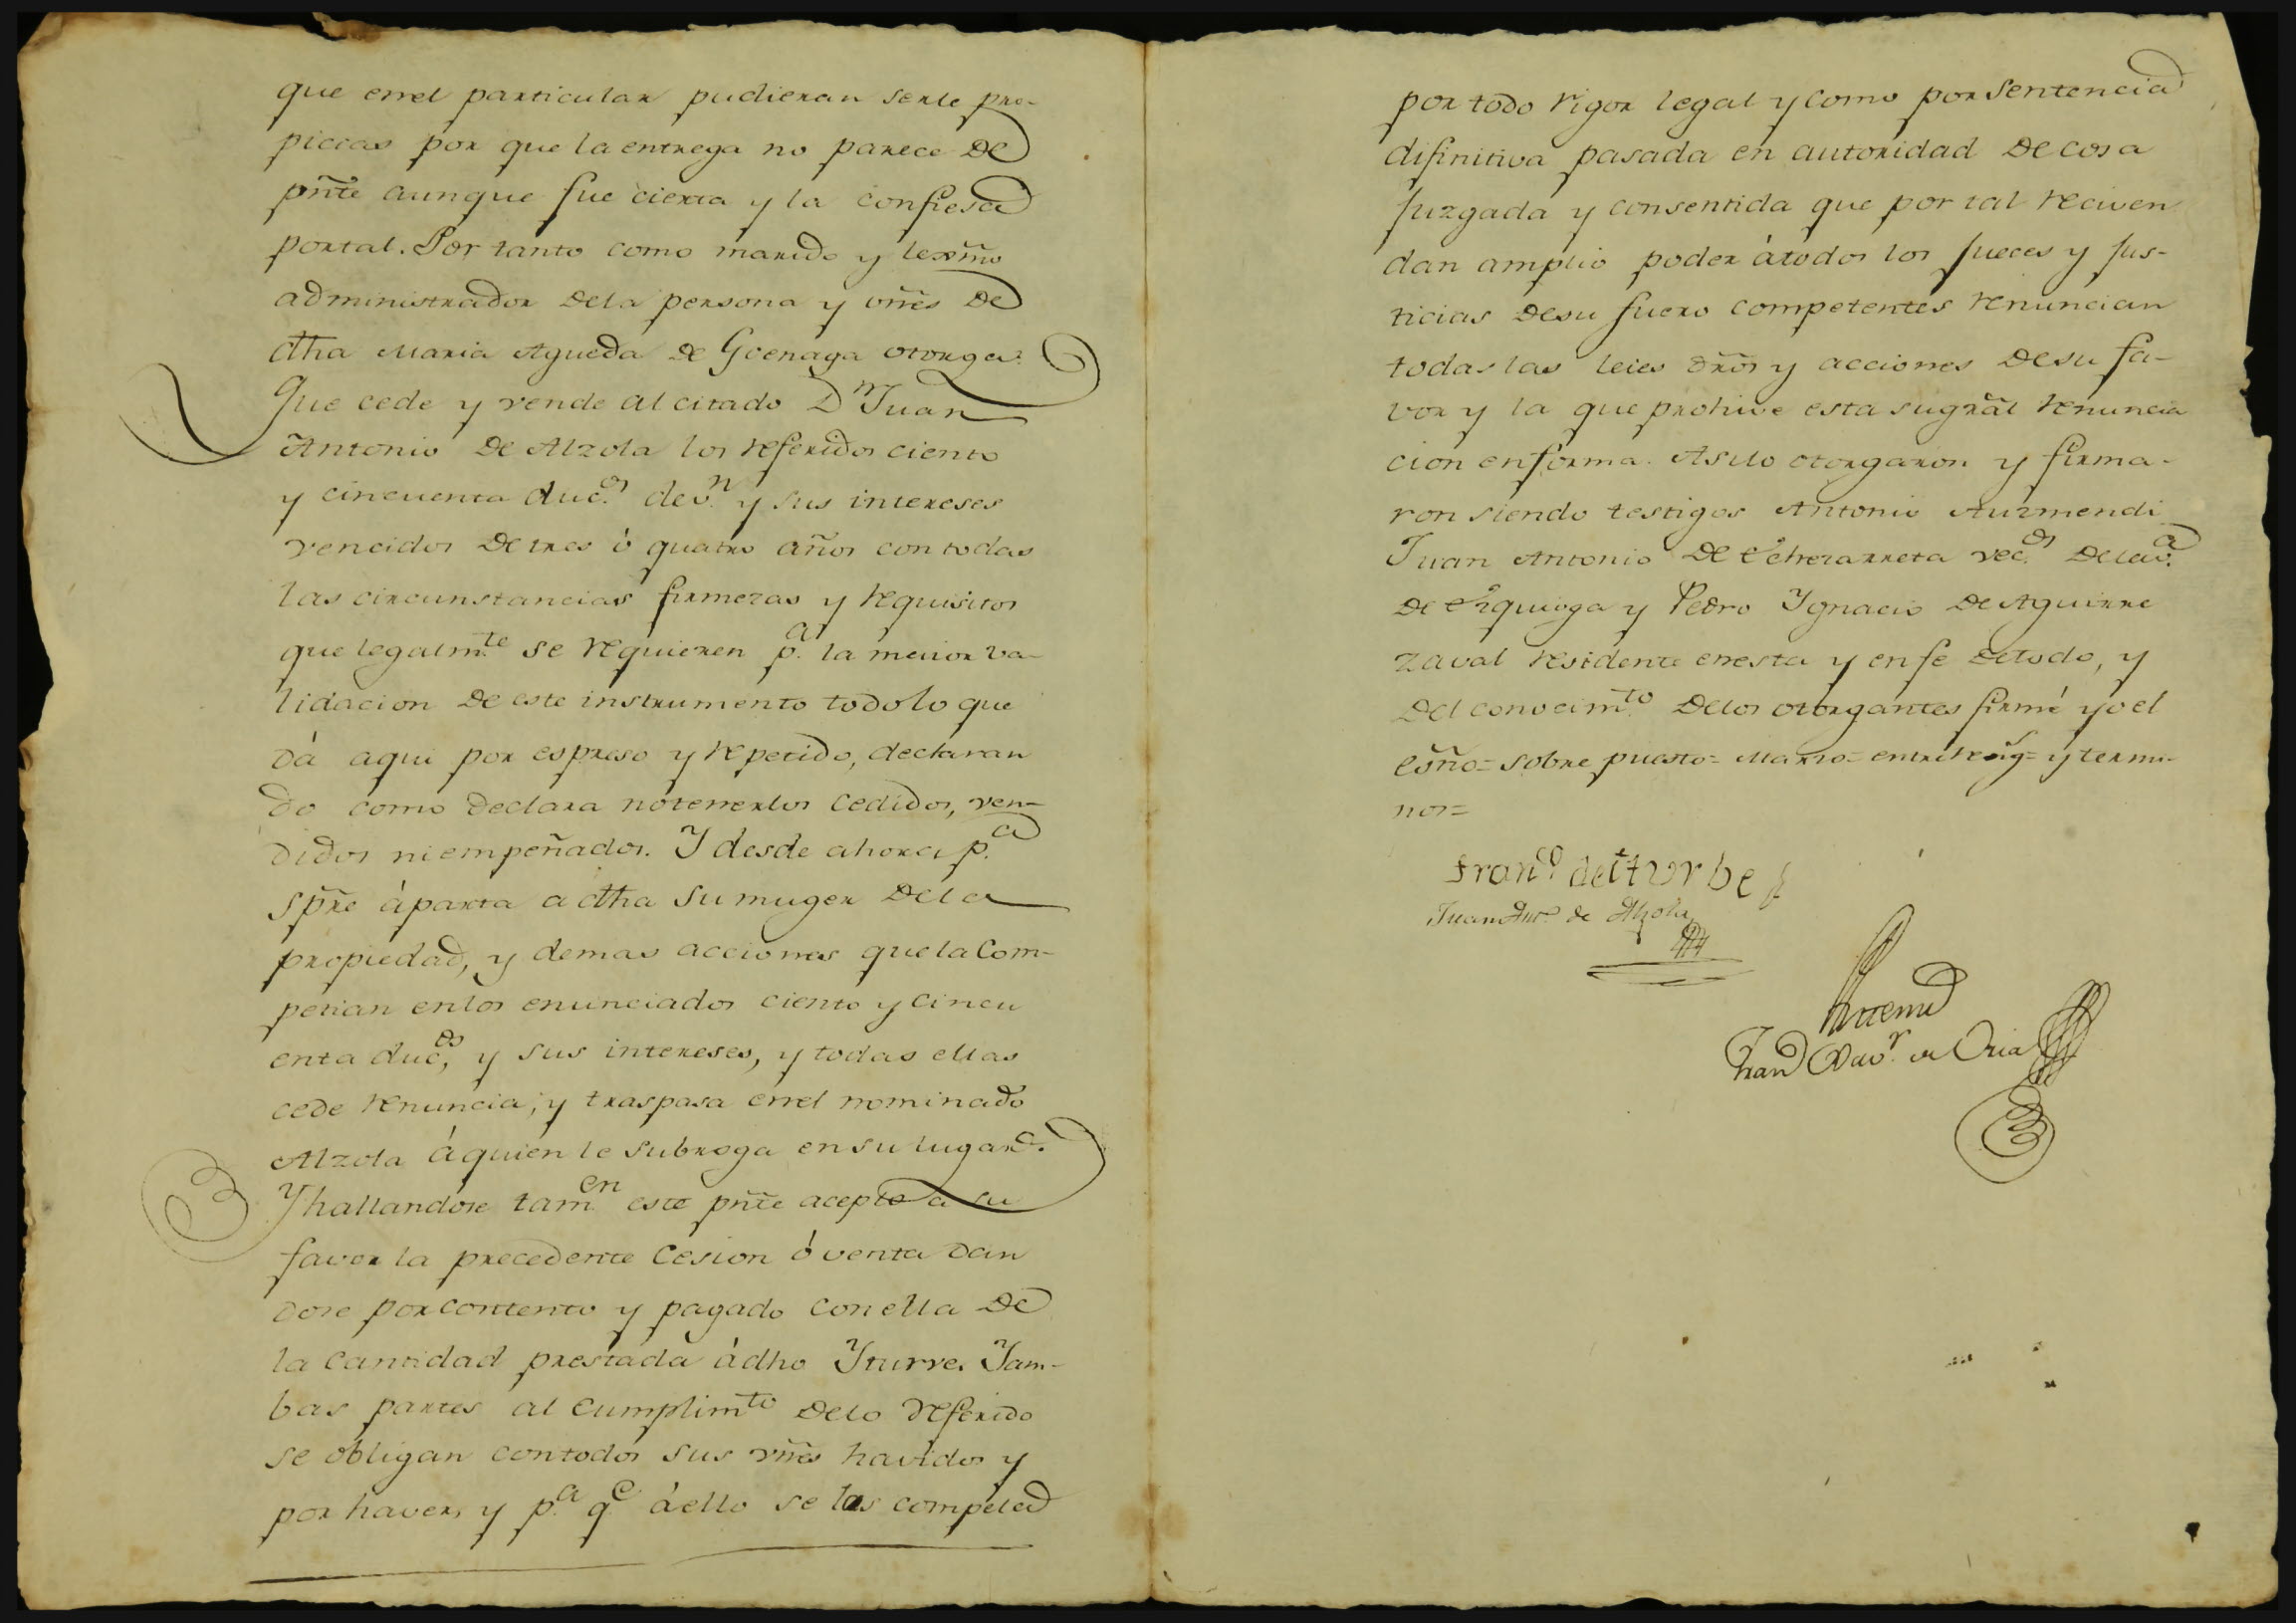 que enel particular pudieran serle pro-
piccas por que la entrega no parece de
pñte aunque fue cierta y la confiesa
portal. Por tanto como marido y lexmo
administrador dela persona y vñes de
dha Maria Agueda de Goenaga otorga:
Que cede y vende al citado Dn Juan
Antonio de Alzola los referidos ciento
y cincuenta duc.os de v.n y sus intereses
vencidos de tres ó quatro años con todas
las circunstancias firmezas y requisitos
que legalm.te se requieren p.a la meiior va-
lidacion de este instrumento todo lo que
dá aqui por espreso y repetido, declaran
do como declara notenerlos cedidos, ven-
didos niempeñados. Y desde ahora p.a
spre áparta a dha su muger dela
propiedad, y demas acciones quela Com-
petian enlos enunciados ciento y cincu
enta duc.os, y sus intereses, y todas ellas
cede renuncia, y traspasa enel nominado
Alzola áquien le subroga ensu lugar.
Y hallandose tam.en este pñte acepto a su
favor la precedente Cesion ó venta dan
dose por contento y pagado con ella de
la cantidad prestada ádho Yturve. Yam-
bas partes al cumplim.to delo referido
se obligan contodos sus vñes havidos y
por haver, y p.a q.e áello se les compela
por todo rigor legal y como por sentencia
difinitiva pasada en autoridad de cosa
juzgada y consentida que por tal reciven
dan amplio poder átodos los jueces y jus-
ticias desu fuero competentes renuncian
todas las leies dros y acciones desu fa-
vor y la que prohive esta sugrãl renuncia
cion enforma. Asilo otorgaron y firma-
ron siendo testigos Antonio Auzmendi
Juan Antonio de Echezarreta vec.os dela v.a
de Ezquioga y Pedro Ygnacio de Aguirre
zaval residente enesta y enfe detodo, y
del conocim.to delos otorgantes firmé yo el
esño= sobre puesto= Marzo= entre reng= y termi-
nos=
Fran.co de Yturbe
Juan Ant.o de Alzola
Antemi
Fran.co Xav.r de Oria